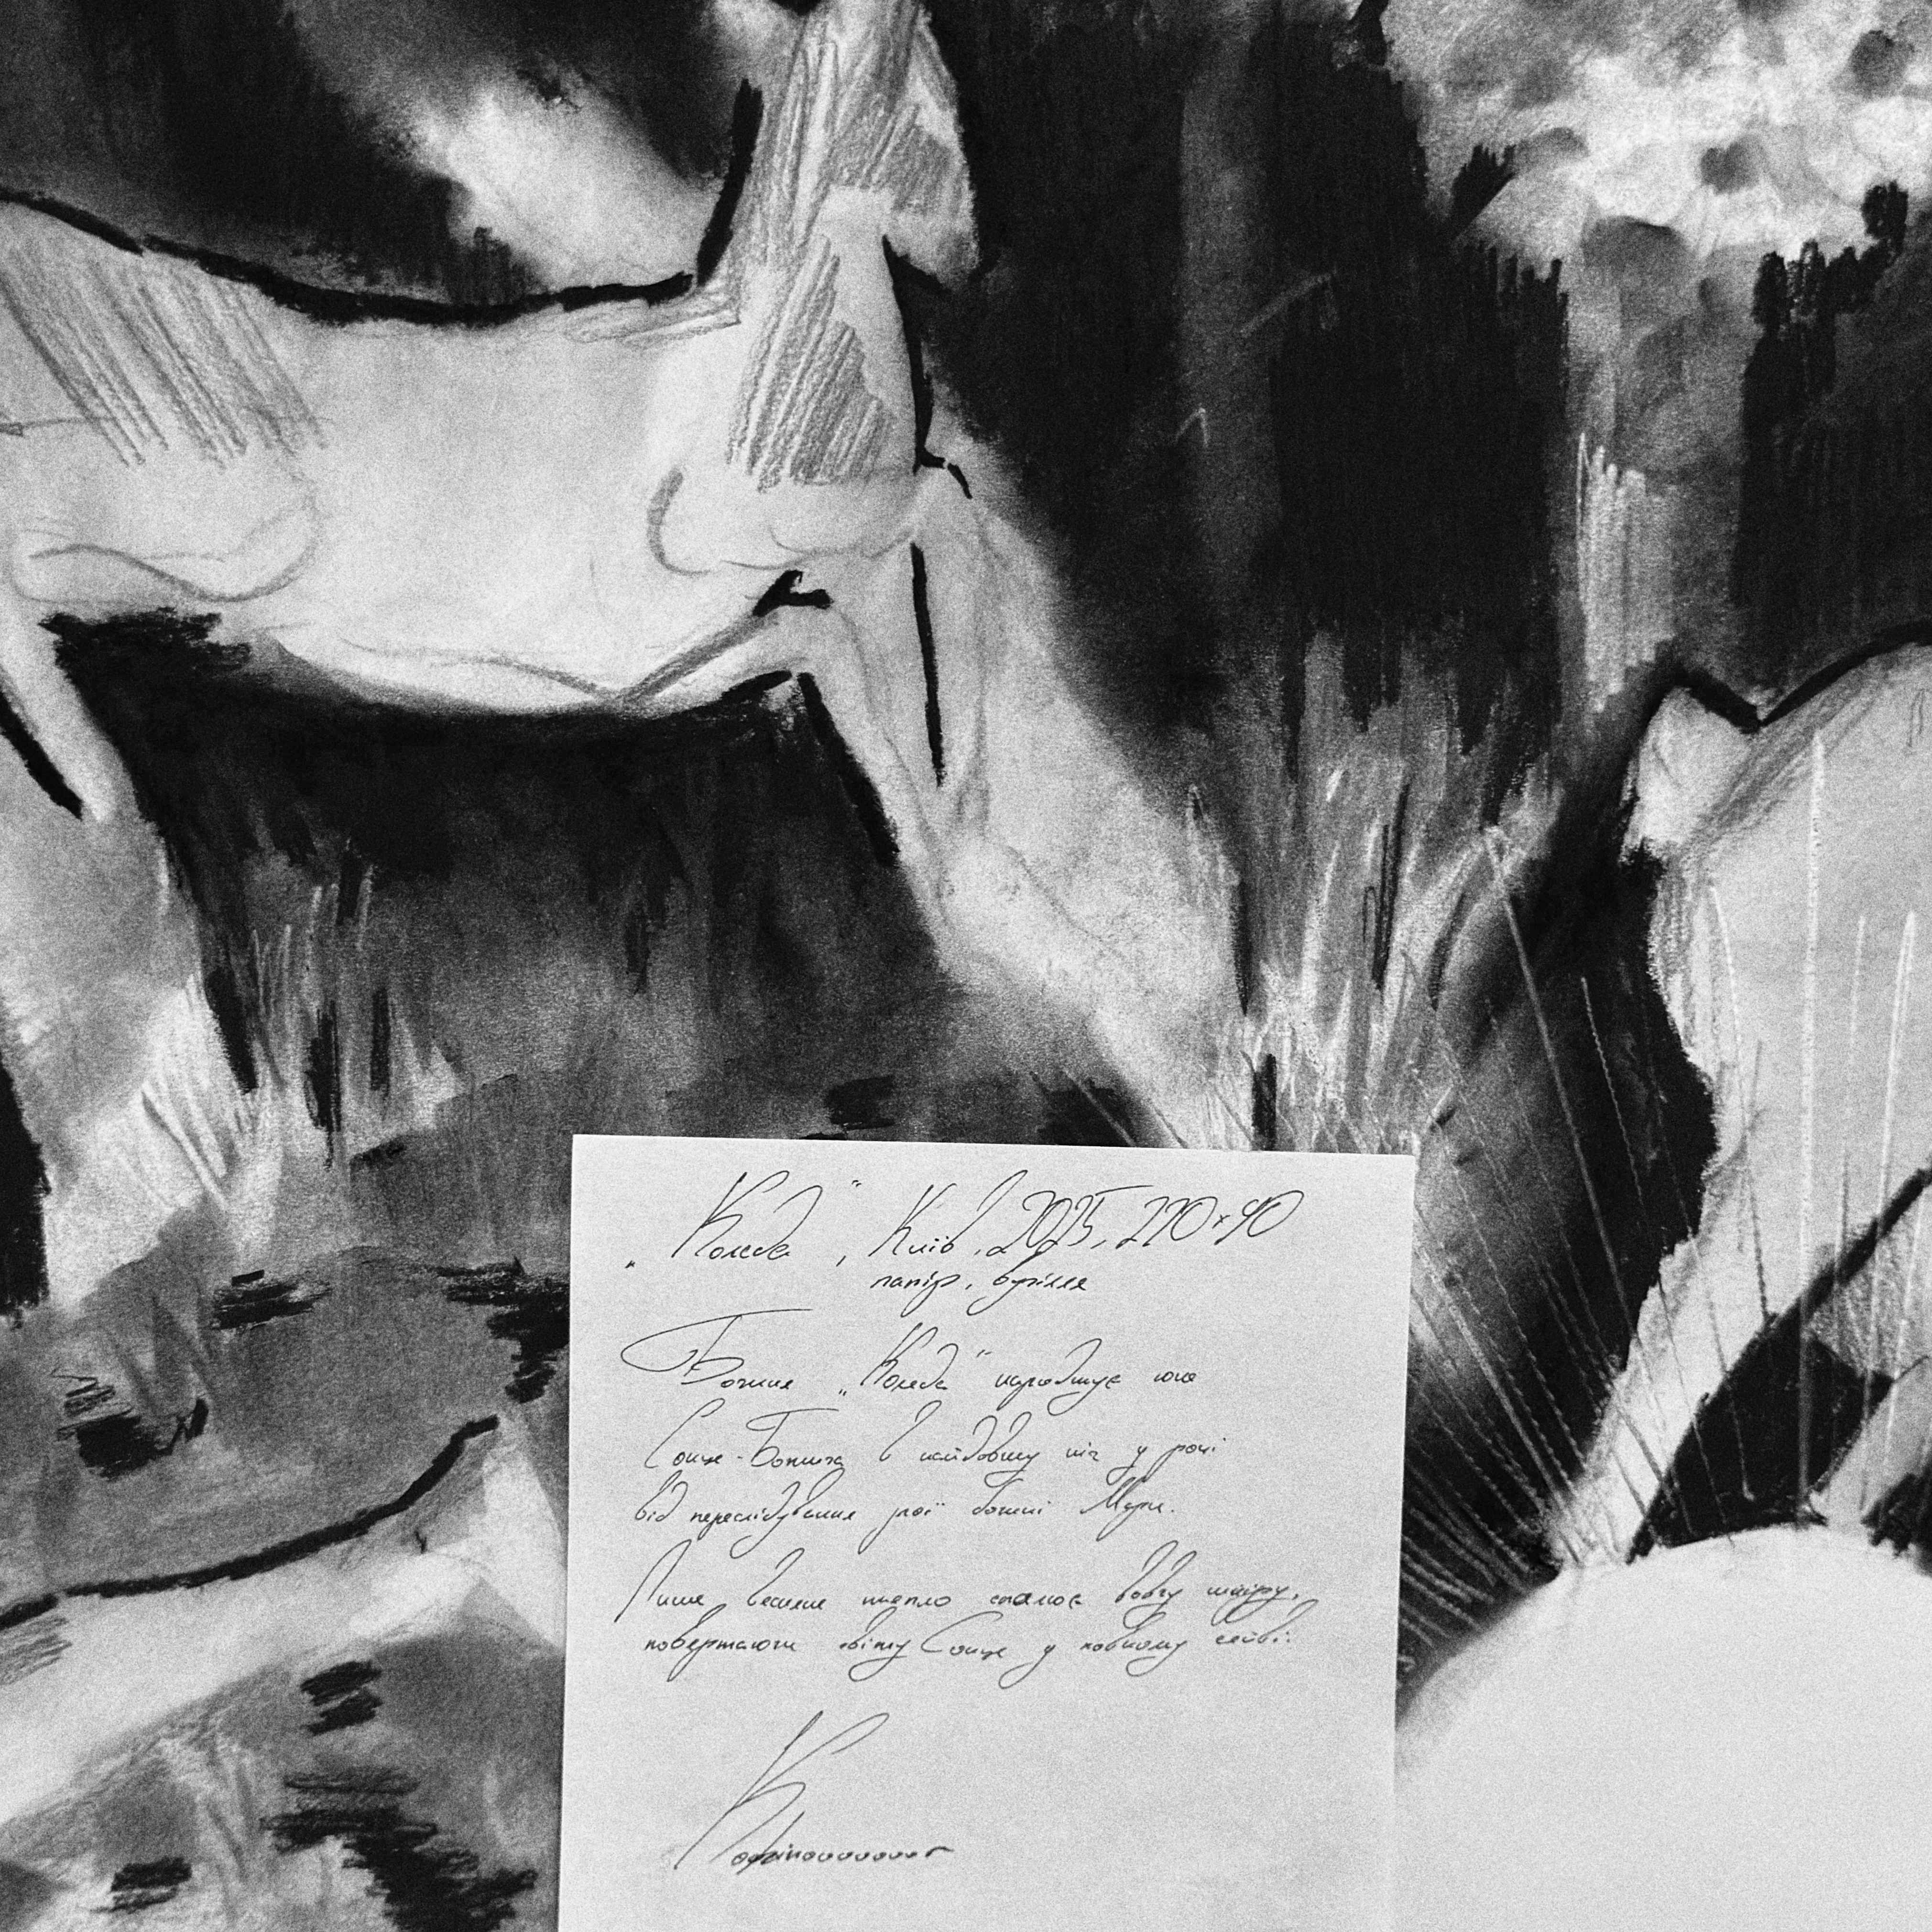 „Коляда", Київ, 2025, 270×90
папір, вугілля
Богиня „Коляда" народжує юне
Сонце-Божича в найдовшу ніч у році
від переслідування злої богині Мари.
Лише весняне тепло спалює вовчу шкіру,
повертаючи світу Сонце у повному сяйві.